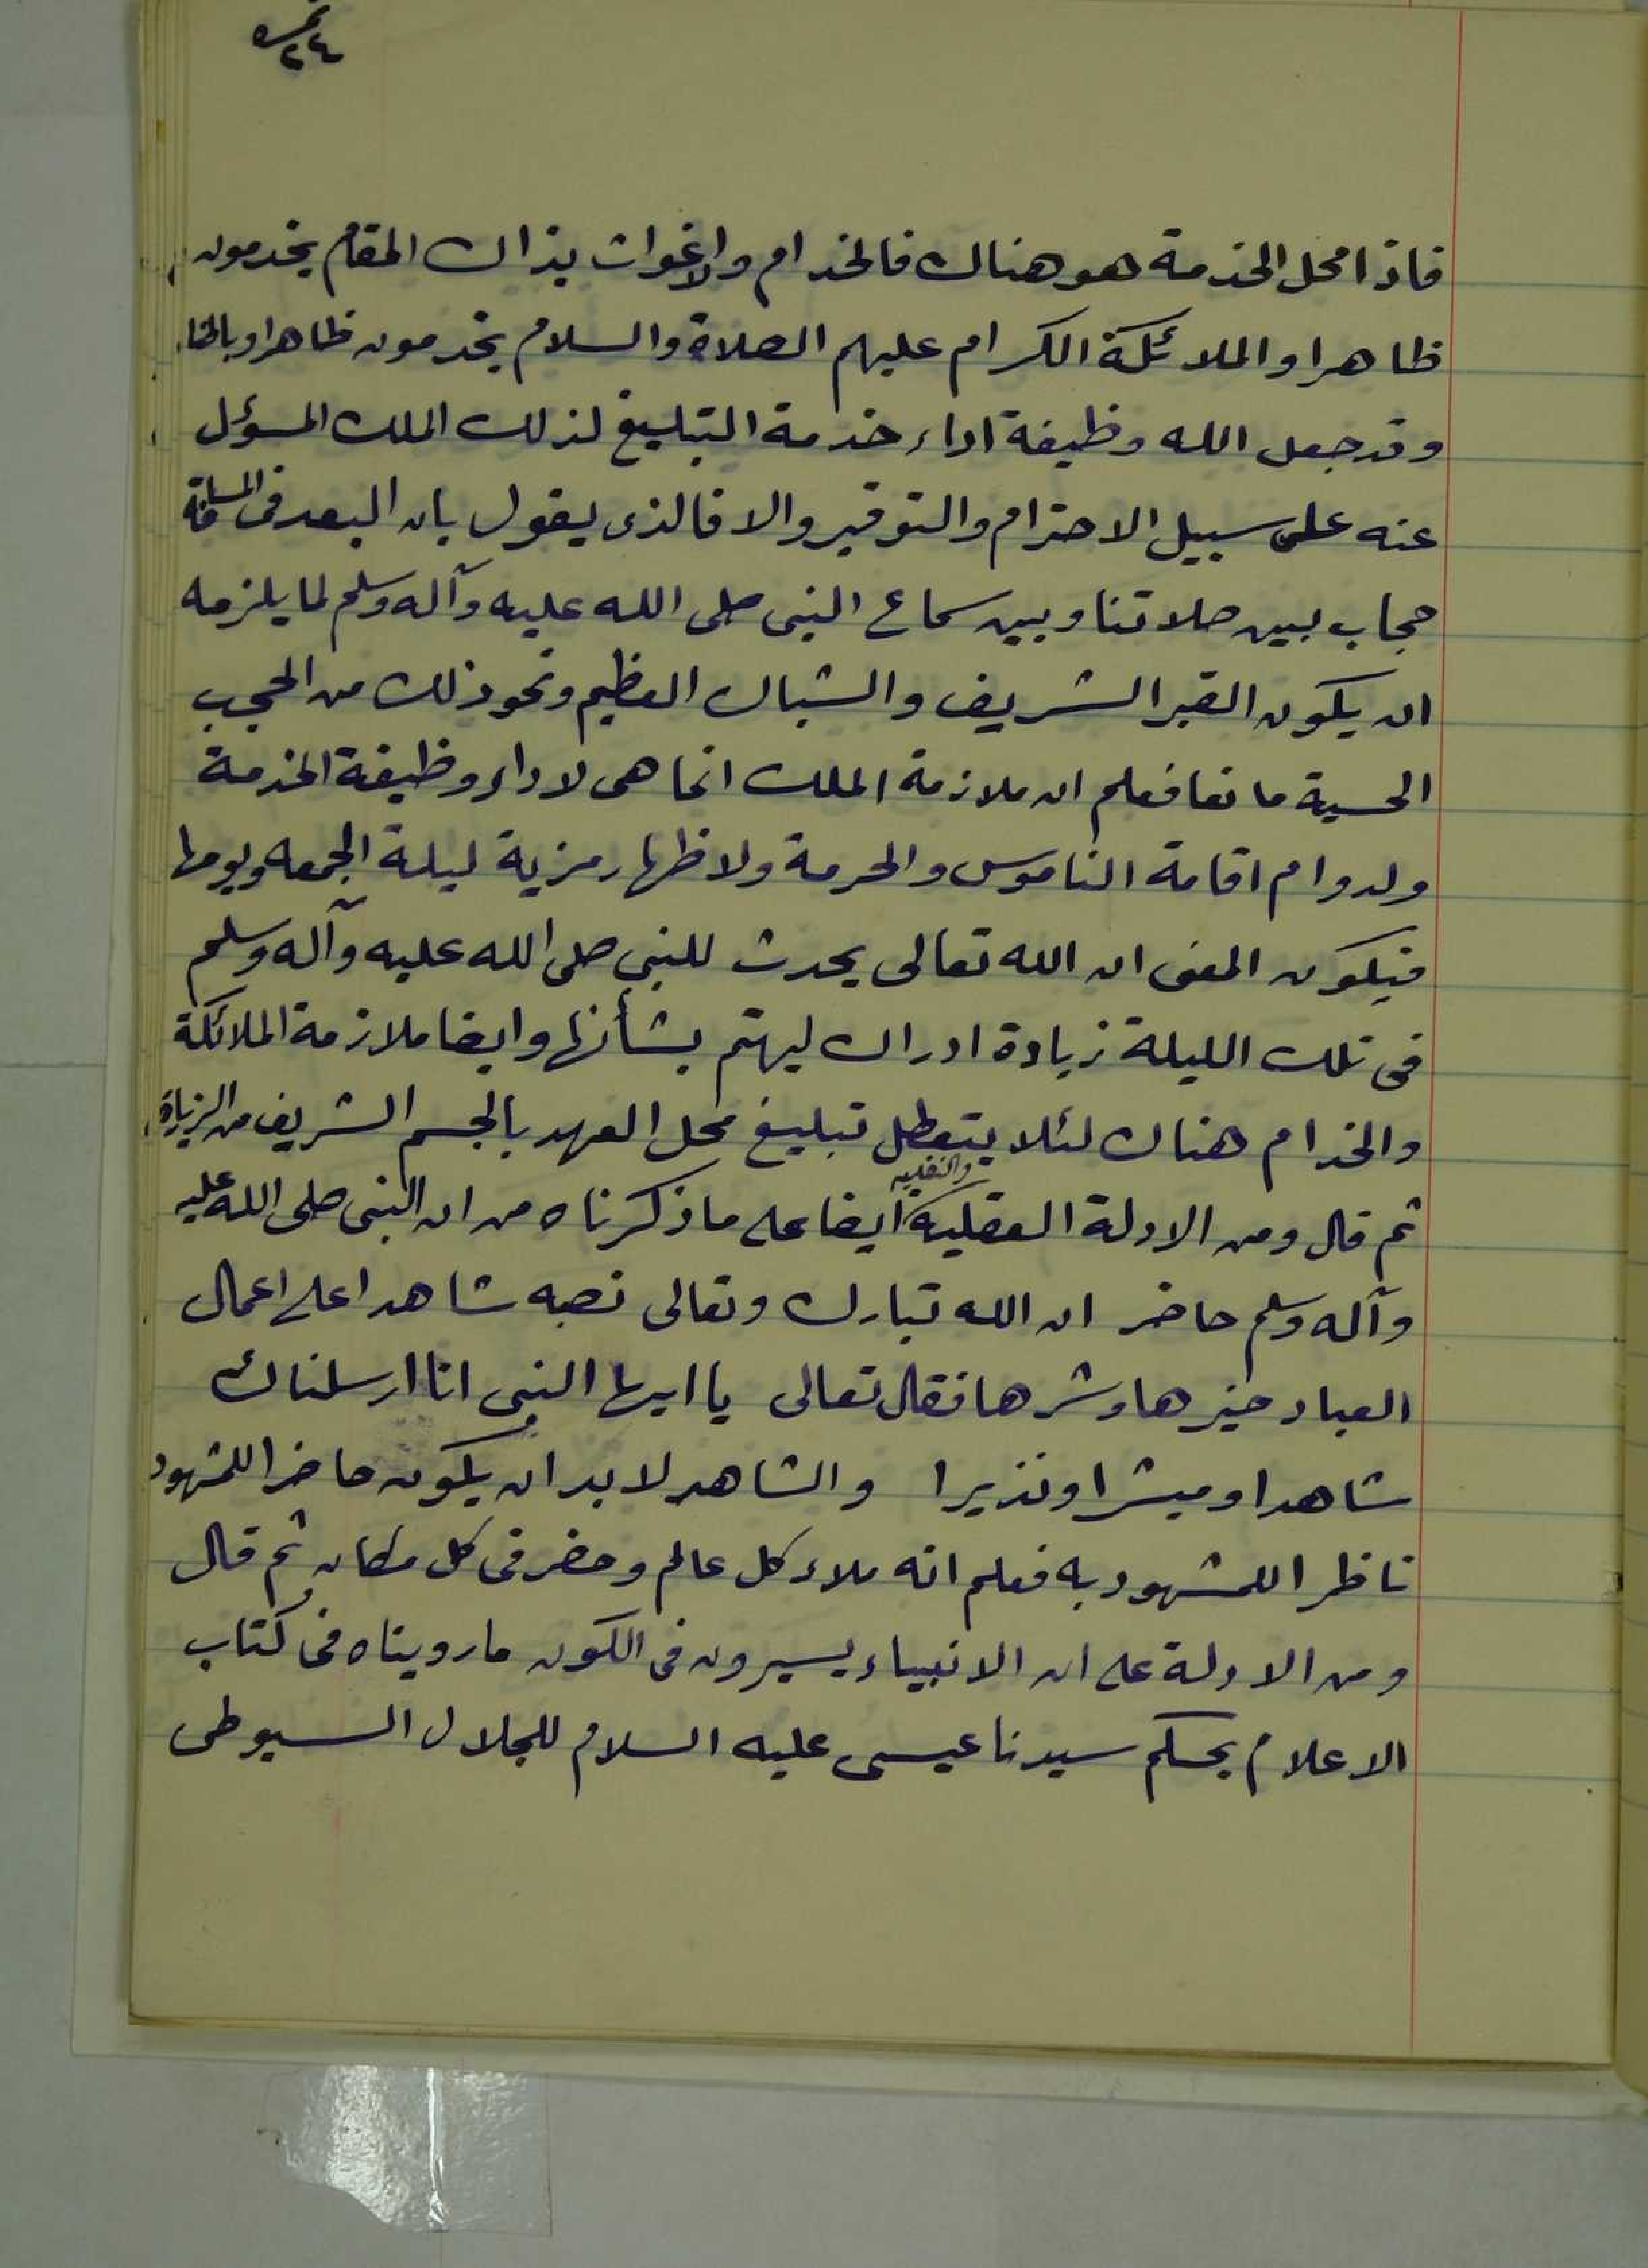 نمرة ٢٤
فاذا محل الخدمة هو هناك فالخدام والاغوات بذاك المقام يخدمون
ظاهرا والملائكة الكرام عليهم الصلاة والسلام يخدمون ظاهرا وباطنا
وقد جعل الله وظيفة اداء خدمة التبليغ لذلك الملك المسؤل
عنه على سبيل الاحترام والتوقير والا فالذى يقول بان البعد فى المسافة
حجاب بين صلاتنا وبين سماع النبى صلى الله عليه وآله وسلم لما يلزمه
ان يكون القبر الشريف والشباك العظيم ونحو ذلك من الحجب
الحسية مانعا فعلم ان ملازمة الملك انما هى لاداء وظيفة الخدمة
ولدوام اقامة الناموس والحرمة ولاظهار مزية ليلة الجمعه ويومها
فيكون المعنى ان الله تعالى يحدث للنبي صلى الله عليه وآله وسلم
فى تلك الليلة زيادة ادراك ليهتم بشأنها وايضا ملازمة الملائكة
والخدام هناك لئلا يتعطل تبليغ محل العهد بالجسم الشريف من الزيارة
ثم قال ومن الادلة العقلية والنقليه ايضا على ما ذكرناه من ان النبى صلى الله عليه
وآله وسلم حاضر ان الله تبارك وتعالى نصبه شاهدا على اعمال
العباد خيرها وشرها فقال تعالى يا ايها النبى انا ارسلناك
شاهدا ومبشرا ونذيرا والشاهد لا بد ان يكون حاضرا للمشهود
ناظرا للمشهود به فعلم انه ملاء كل عالم وحضر فى كل مكان ثم قال
ومن الادلة على ان الانبياء يسيرون فى الكون ما رويناه فى كتاب
الاعلام بحكم سيدنا عيسى عليه السلام للجلال السيوطى